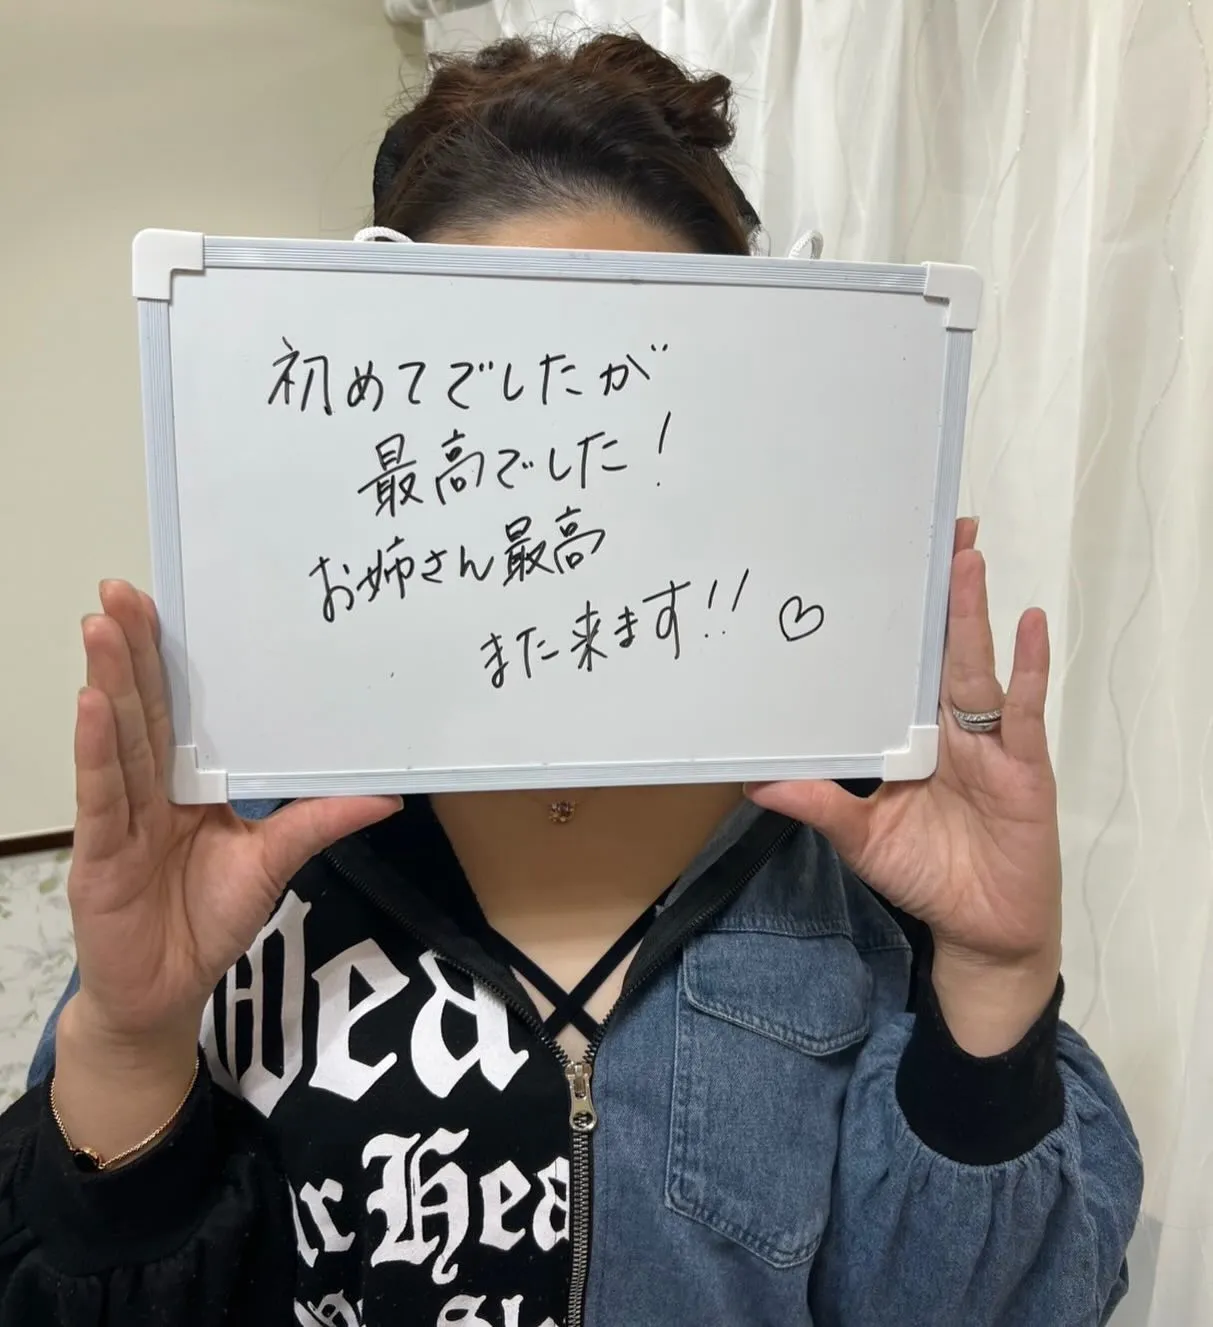 初めてでしたが
最高でした!
お姉さん最高
また来ます!! ♡
Wea
ur Hea